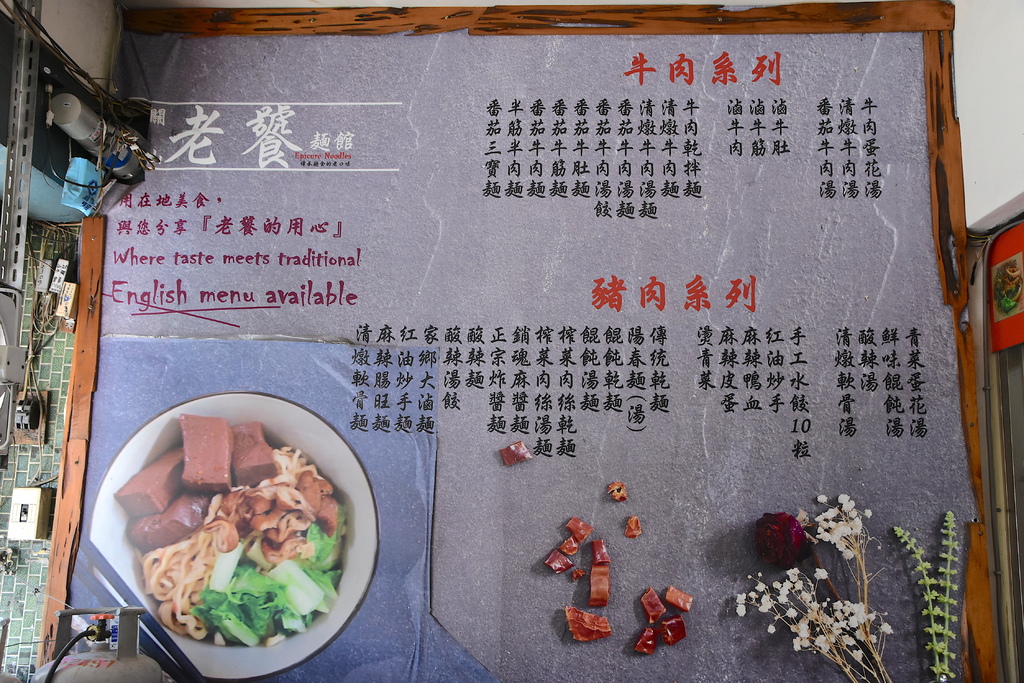 牛肉系列
牛肉乾拌麵
清燉牛肉麵
清燉牛肉湯麵
番茄牛肉湯麵
番茄牛肉湯餃
番茄牛肚麵
番茄牛筋麵
番茄牛肉麵
半筋半肉麵
番茄三寶麵
滷牛肚
滷牛筋
滷牛肉
牛肉蛋花湯
清燉牛肉湯
番茄牛肉湯
老饕
麵館
Epicure Noodles
用在地美食，
與您分享『老饕的用心』
Where taste meets traditional
English menu available
豬肉系列
傳統乾麵
陽春麵(湯)
餛飩乾麵
餛飩湯麵
榨菜肉絲乾麵
榨菜肉絲湯麵
銷魂麻醬麵
正宗炸醬麵
酸辣麵
酸辣湯餃
家鄉大滷麵
紅油炒手麵
麻辣腸旺麵
清燉軟骨麵
手工水餃10粒
紅油炒手
麻辣鴨血
麻辣皮蛋
燙青菜
青菜蛋花湯
鮮味餛飩湯
酸辣湯
清燉軟骨湯